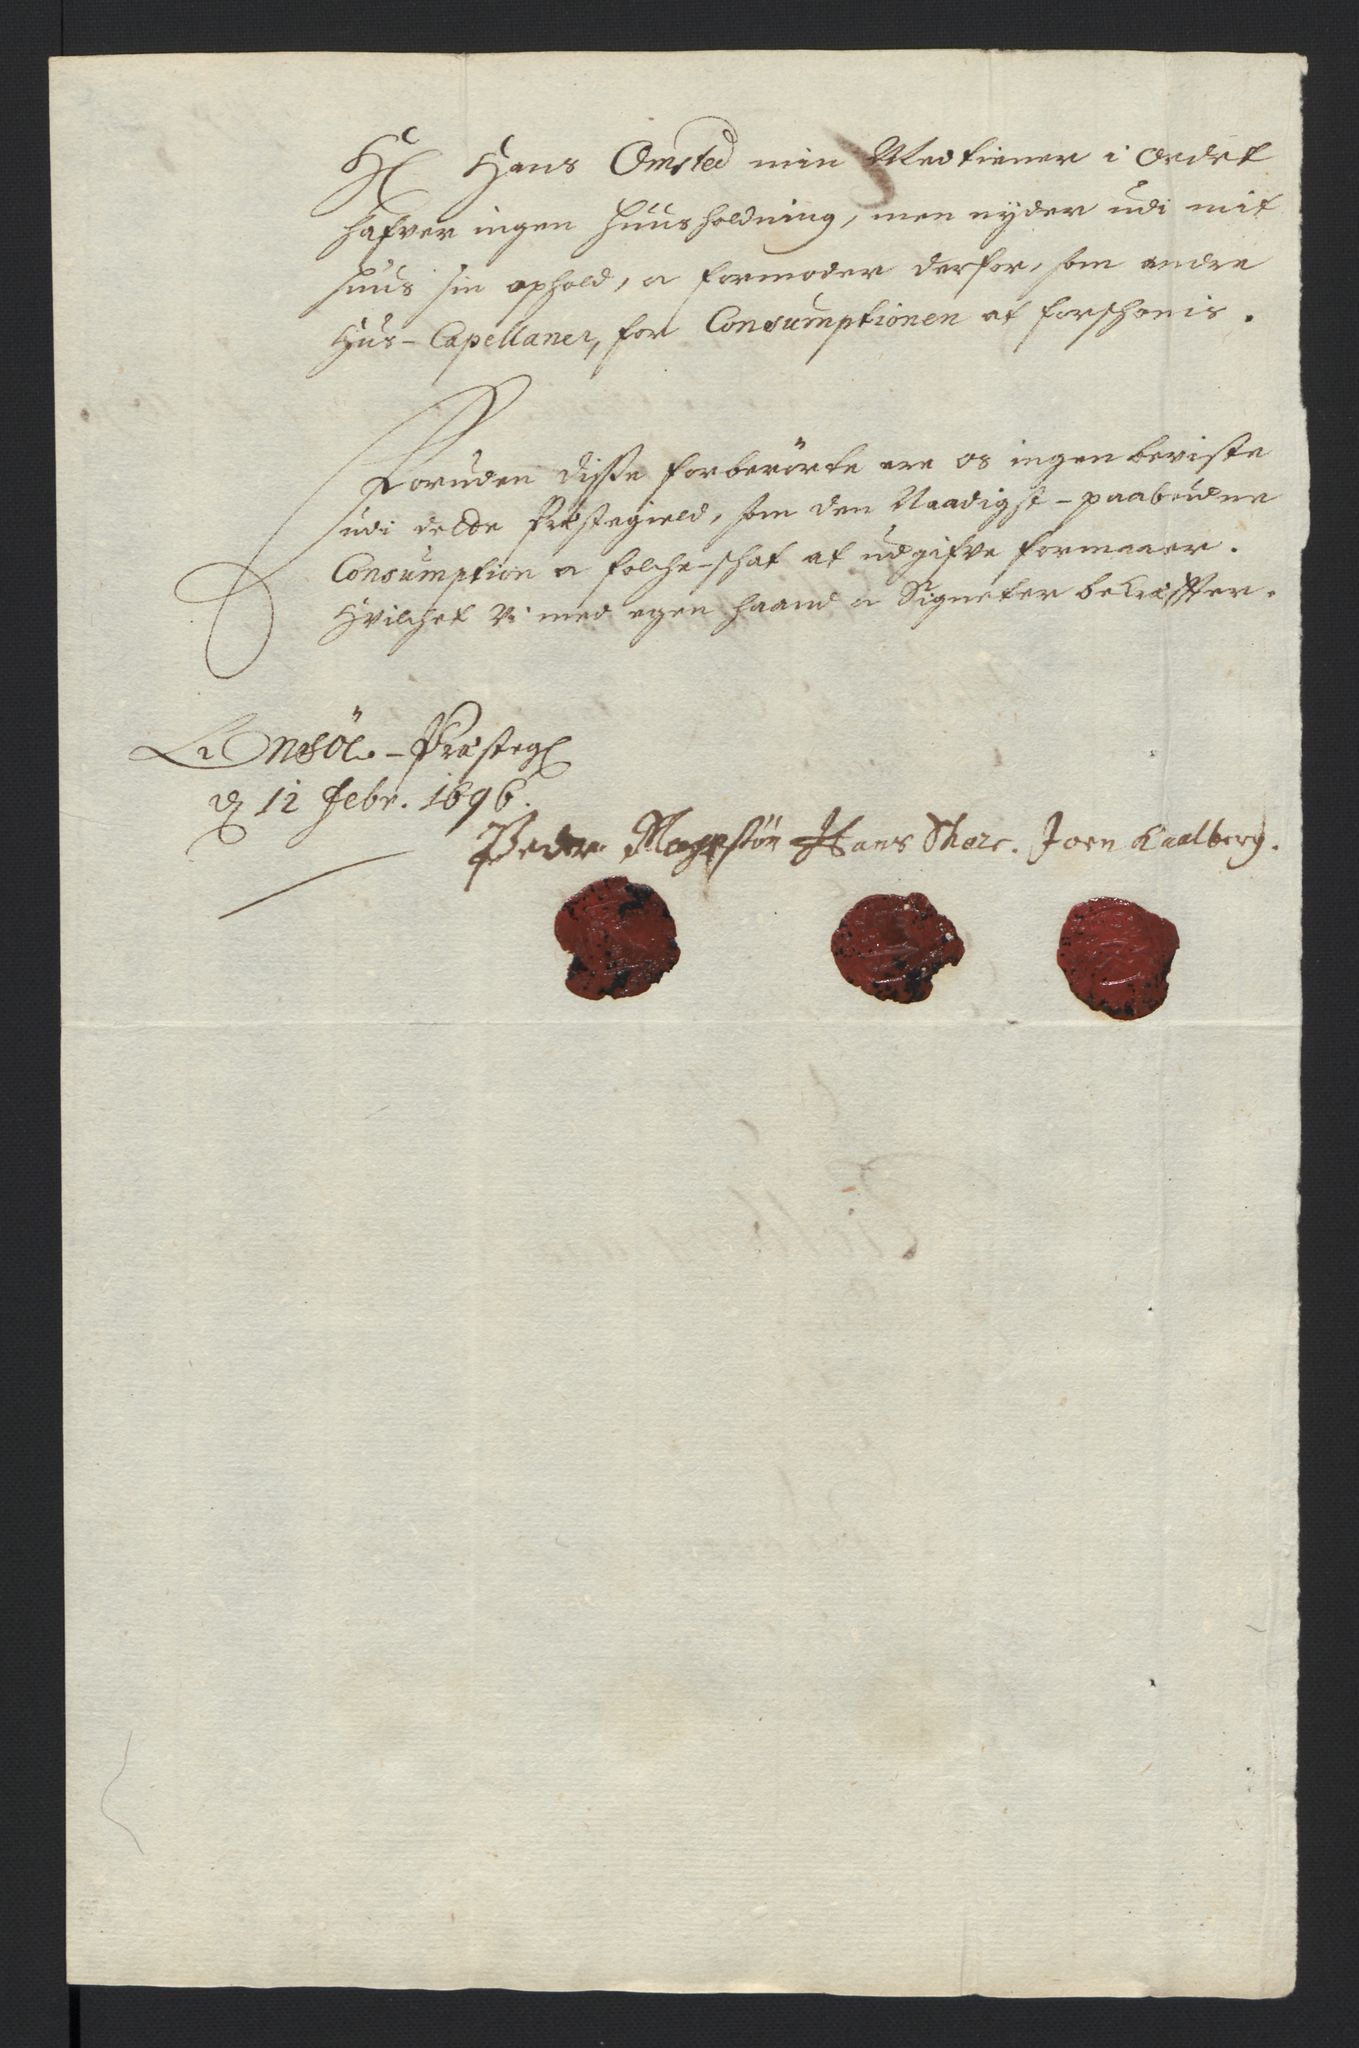 Hr Hans Omsted min Medtiener i Ordet
hafver ingen huusholdning, men nyder udi mit
huus sin ophold, o formoder derfor, som andre
Hus-Capellaner, for Consumptionen at forschonis.
Foruden disse forberörte ere os ingen beviste
udi dette Præstegield, som den Naadigst-paabudne
Consumption o folche-schat at udgifve formaaer.
Hvilchet Vi med egen haand o Signeter bekræffter.
Onsöe-Præsteg
d 12 Febr. 1696.
Peder Hans Joen Kaalberg.